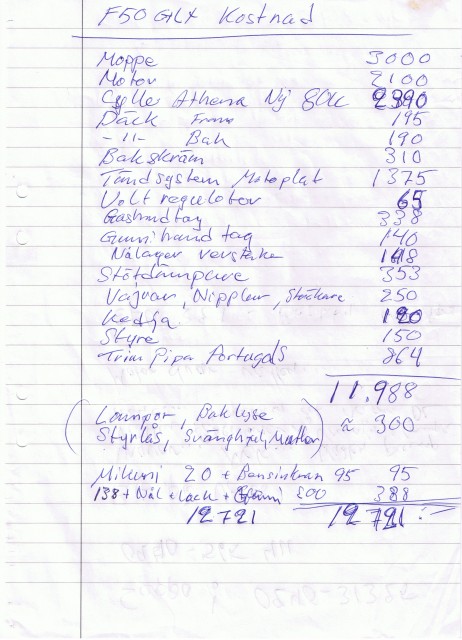 F50 GLX Kostnad
Moppe 3000
Motor 2100
Cylle Athena Ny 80cc 2390
Däck Fram 195
-11- Bak 190
Bakskärm 310
Tändsystem Motoplat 1375
Volt regulator 65
Gashandtag 338
Gummihandtag 140
Nålager 148
Stötdämpare 353
Vajrar, Nipplar, 250
Kedja 120
Styre 150
Trim Pipa Portugals 264
11.988
Lampor, Baklyse
Styrlås, Svänghjul, ≈ 300
Mikuni 20 + Bensinkran 95 95
138 + Nål + Lack + 200 388
12721 12721:-